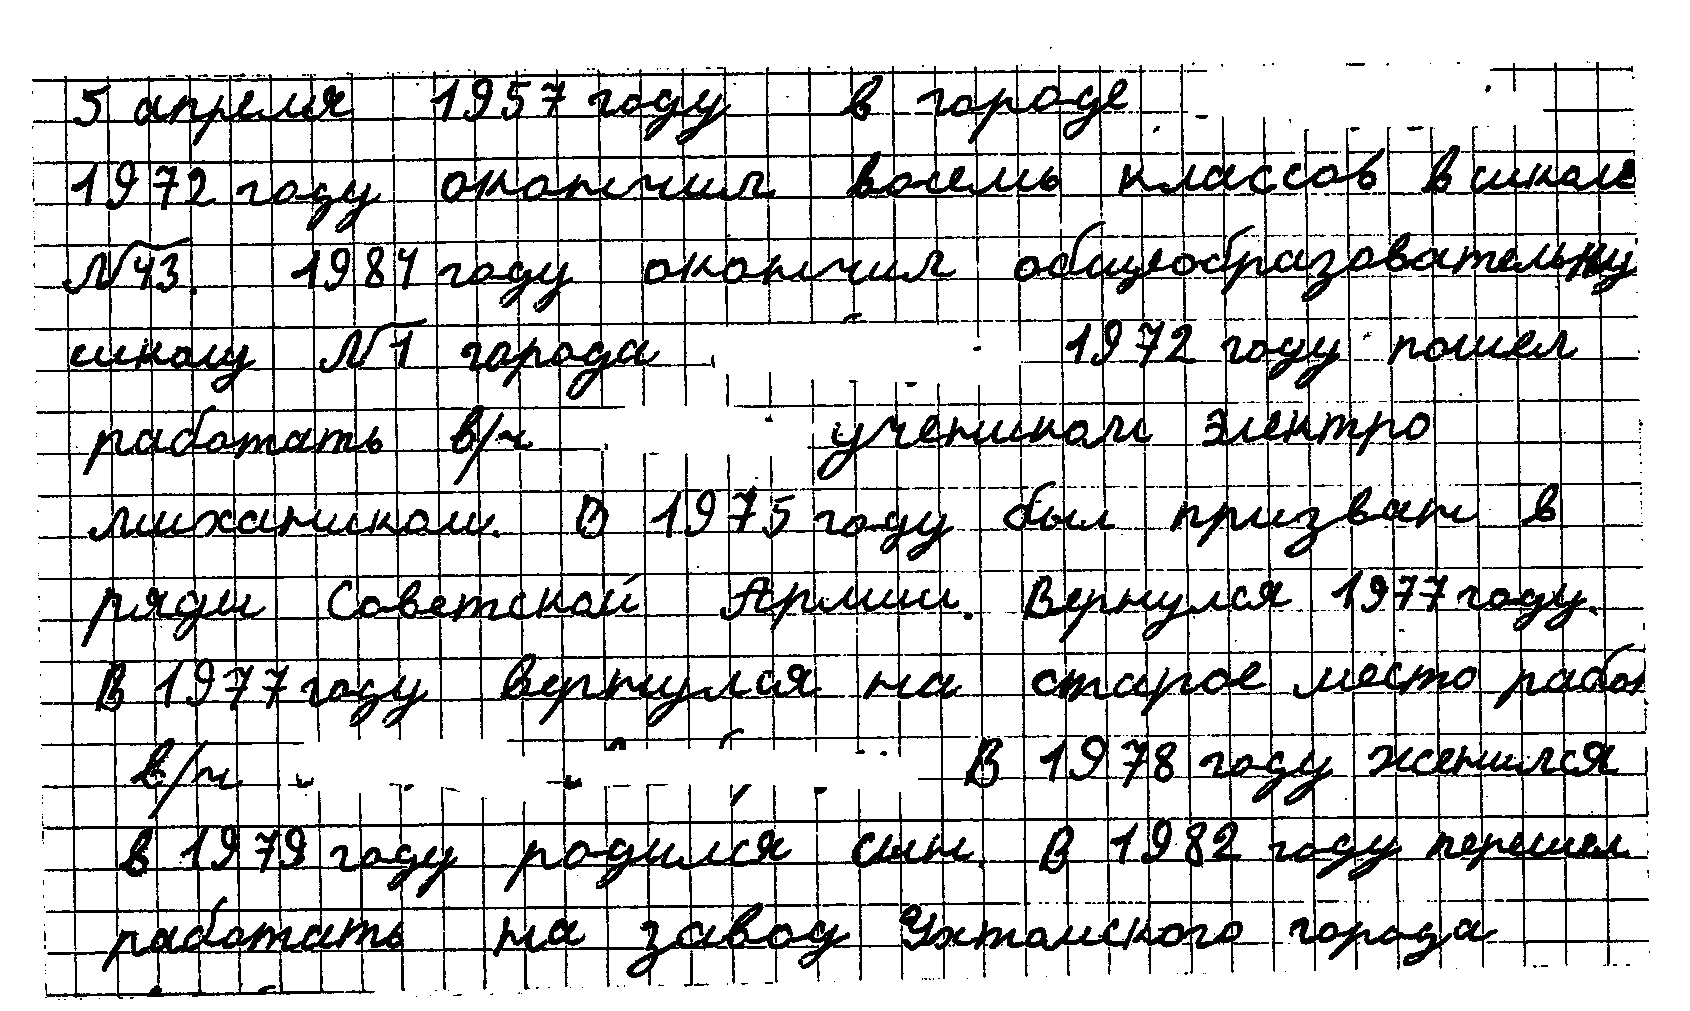 5 апреля 1957 году в городе
1972 году окончил восемь классов в школе
№43. 1984 году окончил общеобразовательну
школу №1 города 1972 году пошел
работать в/ч учеником электро
михаником. В 1975 году был призван в
ряды Советской Армии. Вернулся 1977 году.
В 1977 году вернулся на старое место работ
в/ч В 1978 году женился
в 1979 году родился сын. В 1982 году перешел
работать на завод Ухтомского города